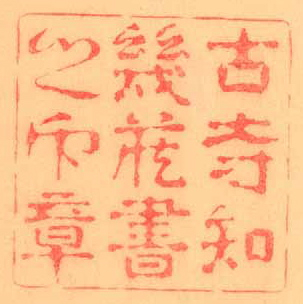 古寺知
幾蔵書
之印章